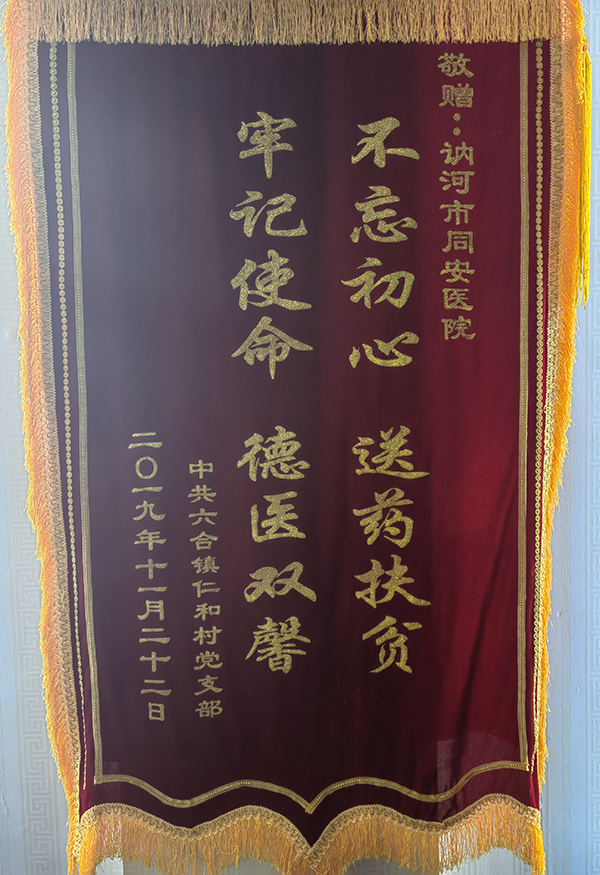 敬赠：讷河市同安医院
不忘初心 送药扶贫
牢记使命 德医双馨
中共六合镇仁和村党支部
二〇一九年十一月二十二日